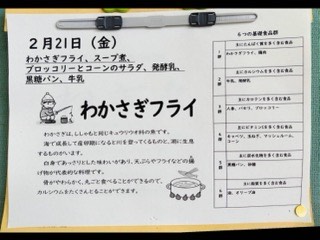 2月21日（金）
わかさぎフライ、スープ煮、
ブロッコリーとコーンのサラダ、発酵乳、
黒糖パン、牛乳
わかさぎフライ
わかさぎは、ししゃもと同じキュウリウオ科の魚です。
海で成長して産卵期になると川を登ってくるものと、湖に生息
するものがいます。
白身であっさりとした味わいがあり、天ぷらやフライなどの揚
げ物が代表的な料理です。
骨がやわらかく、丸ごと食べることができるので、
カルシウムをたくさんとることができます。
6つの基礎食品群
1群
主にたんぱく質を多く含む食品
わかさぎフライ、鶏肉
2群
主にカルシウムを多く含む食品
牛乳、発酵乳
3群
主にカロテンを多く含む食品
人参、パセリ、ブロッコリー
4群
主にビタミンCを多く含む食品
キャベツ、玉ねぎ、コーン、マッシュルーム、
5群
主に炭水化物を多く含む食品
黒糖パン、砂糖
6群
主に脂質を多く含む食品
油、オリーブ油